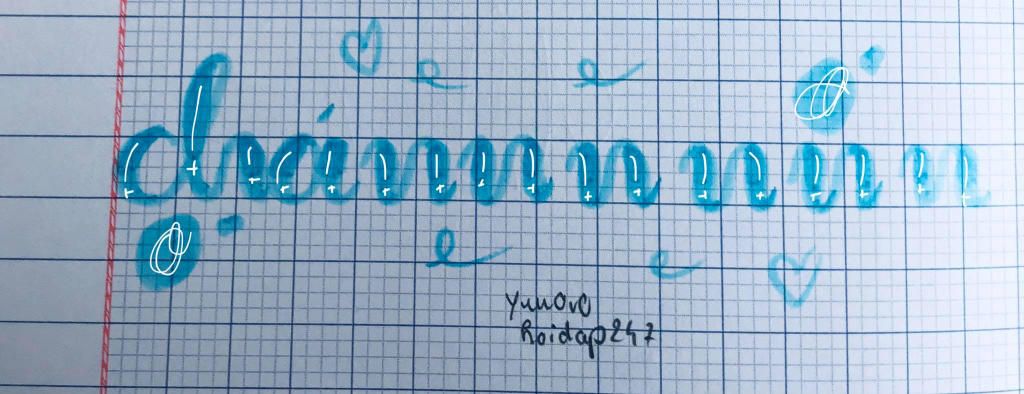 chánnnnnn
YuuOvO
hoidap247